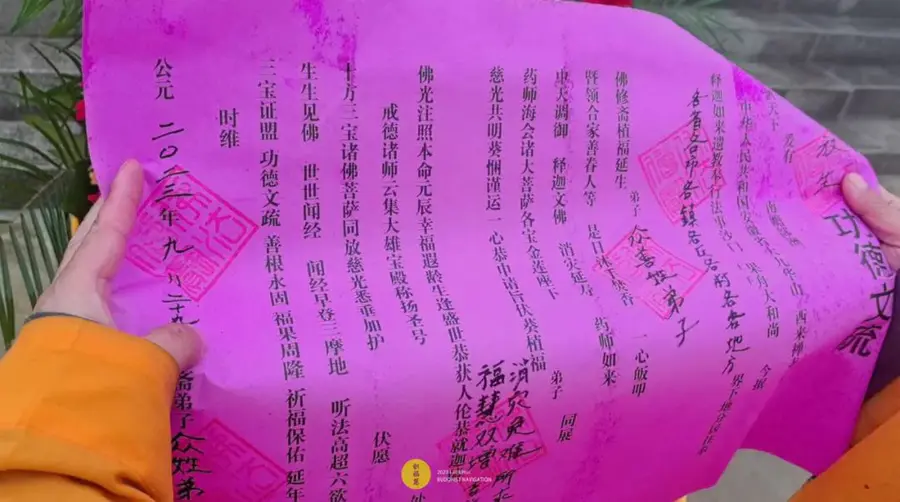 功德文疏
天下
爱有
中华人民共和国安徽省九华山
西来禅寺
果舟大和尚
今据
释迦如来遗教奉行法事沙门
各省各市各镇各区各村各各地方
界下地分民住
佛修斋植福延生
弟子
众善投弟子
一心皈叩
暨领合家善眷人等
是日沐手焚香
药师如来
中天调御
释迦文佛
消灾延寿
药师海会诸大菩萨各宝金莲座下
弟子
同展
慈光共明葵悃谨运一心恭申请旨伏葵植福
消灾免难
福慧双增
佛光注照本命元辰幸福遐龄生逢盛世恭获人伦恭就迦
戒德诸师云集大雄宝殿称扬圣号
十方三宝诸佛菩萨同放慈光悉垂加护
伏愿
生生见佛
世世闻经
闻经早登三摩地
听法高超六欲
三宝证盟
功德文疏
善根永固
福果周隆
祈福保佑
延年
时维
公元
二〇二三年九月二十九
斋弟子众姓弟
祈福慧
BUDDHIST NAVIGATION